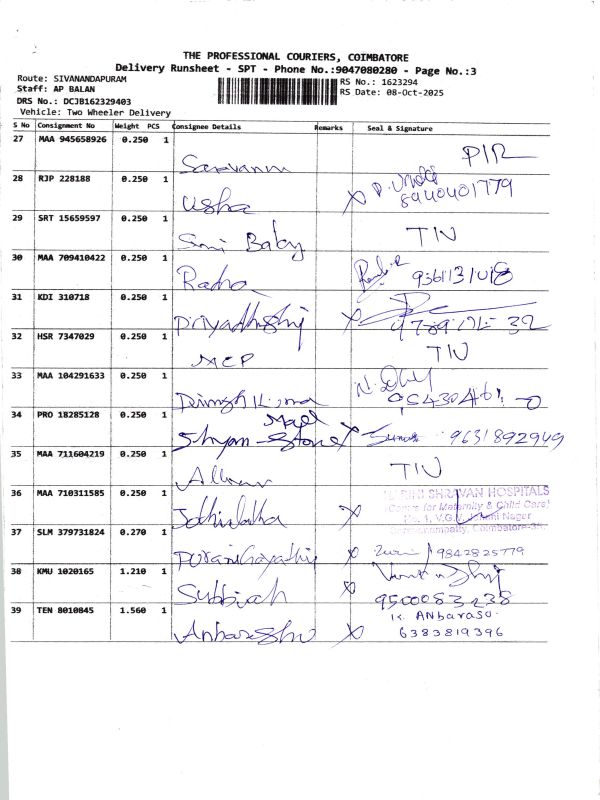 THE PROFESSIONAL COURIERS, COIMBATORE
Delivery Runsheet - SPT - Phone No.:9047080280 - Page No.:3
Route: SIVANANDAPURAM
RS No.: 1623294
Staff: AP BALAN
RS Date: 08-Oct-2025
DRS No.: DCJB162329403
Vehicle: Two Wheeler Delivery
S No Consignment No Weight PCS Consignee Details Remarks Seal & Signature
27 MAA 945658926 0.250 1
Saravanan PIR
28 RJP 228188 0.250 1
Usha 8940401779
29 SRT 15659597 0.250 1
Baby TIN
30 MAA 709410422 0.250 1
Radha
31 KDI 310718 0.250 1
32 HSR 7347029 0.250 1
MCP TIN
33 MAA 104291633 0.250 1
34 PRO 18285128 0.250 1
Shyam Stones 9631892949
35 MAA 711604219 0.250 1
TIN
36 MAA 710311585 0.250 1
SHRAVAN HOSPITALS
(Centre for Maternity & Child Care)
No. 1, V.G.
Coimbatore-35.
37 SLM 379731824 0.270 1
9842825779
38 KMU 1020165 1.210 1
Subbiah
9500083238
39 TEN 8010845 1.560 1
K. ANbaraso
6383819396